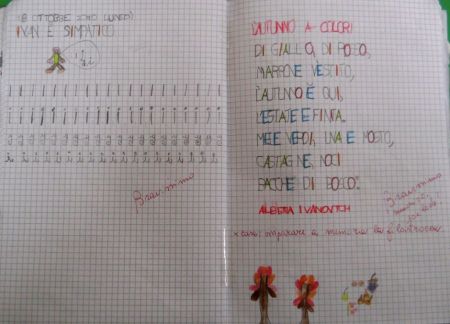 18 OTTOBRE 2010 LUNEDÌ
IVAN È SIMPATICO
i
Bravissimo
L'AUTUNNO A COLORI
DI GIALLO, DI ROSSO,
MARRONE VESTITO,
L'AUTUNNO È QUI,
L'ESTATE È FINITA.
MELE VERDI, UVA E MOSTO,
CASTAGNE, NOCI
BACCHE DI BOSCO.
ALBERTA IVANOVITCH
Bravissimo
imparare a memoria la filastrocca